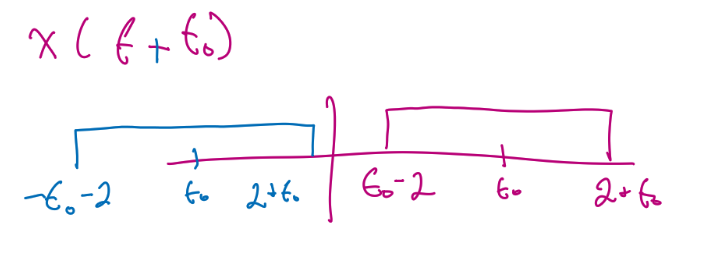 x(t+t₀)
-t₀-2 t₀ 2+t₀ t₀-2 t₀ 2+t₀